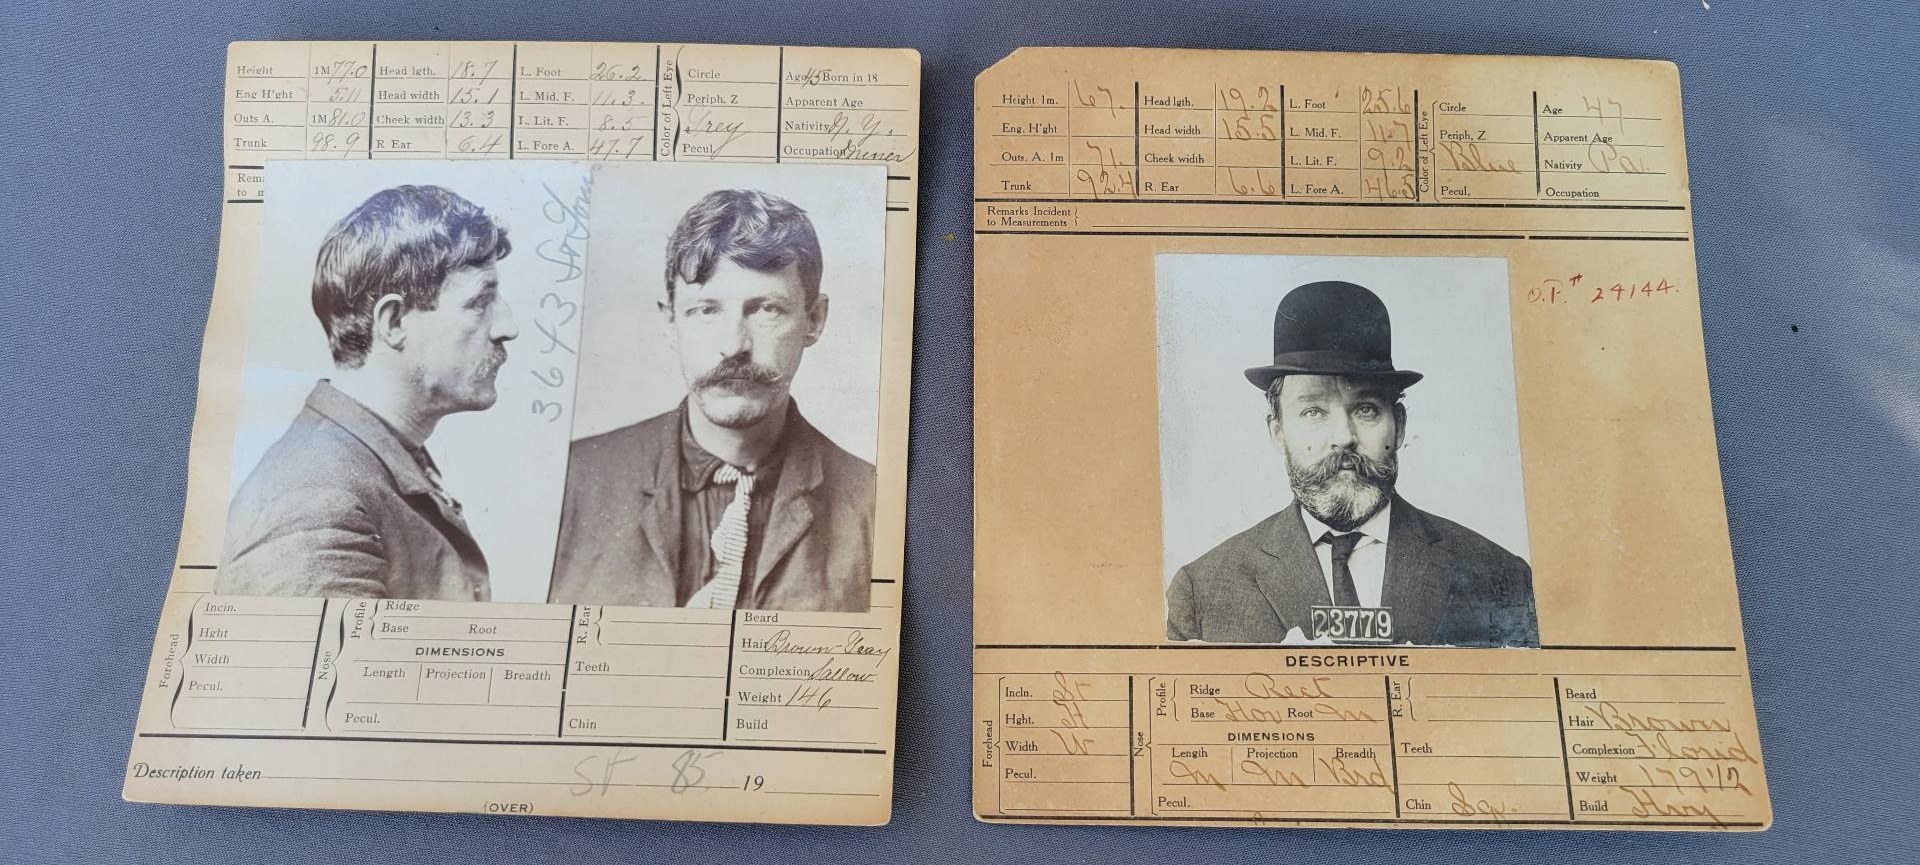 Height 1M 77.0 Head lgth. 18.7 L. Foot 26.2 Circle Age 45 Born in 18
Eng H'ght 5.11 Head width 15.1 L. Mid. F. 11.3. Periph. Z Apparent Age
Outs A. 1M 81.0 Cheek width 13.3 L. Lit. F. 8.5 Grey Nativity N. Y.
Trunk 98.9 R Ear 6.4 L. Fore A. 47.7 Pecul. Occupation
Color of Left Eye
Rema
to m
3643
Incin. Ridge Beard
Hght Base Root Hair Brown Gray
Width DIMENSIONS Teeth Complexion Sallow
Pecul. Length Projection Breadth Weight 146
Pecul. Chin Build
Forehead
Nose
Profile
R. Ear
Description taken St 85 19
(OVER)
Height 1m. 67. Head lgth. 19.2 L. Foot 25.6 Circle Age 47
Eng. H'ght Head width 15.5 L. Mid. F. 11.7 Periph, Z Apparent Age
Outs. A. 1m 71. Cheek width L. Lit. F. 9.2 Blue Nativity Pa.
Trunk 92.4 R. Ear 6.6 L. Fore A. 46.5 Pecul. Occupation
Color of Left Eye
Remarks Incident
to Measurements
24144.
23779
DESCRIPTIVE
Incln. St Ridge Rect Beard
Hght. H Base Hor Root m Hair Brown
Width W DIMENSIONS Teeth Complexion Florid
Pecul. Length m Projection m Breadth Brd Weight 179 1/2
Pecul. Chin Sq. Build Hvy
Forehead
Nose
Profile
R. Ear